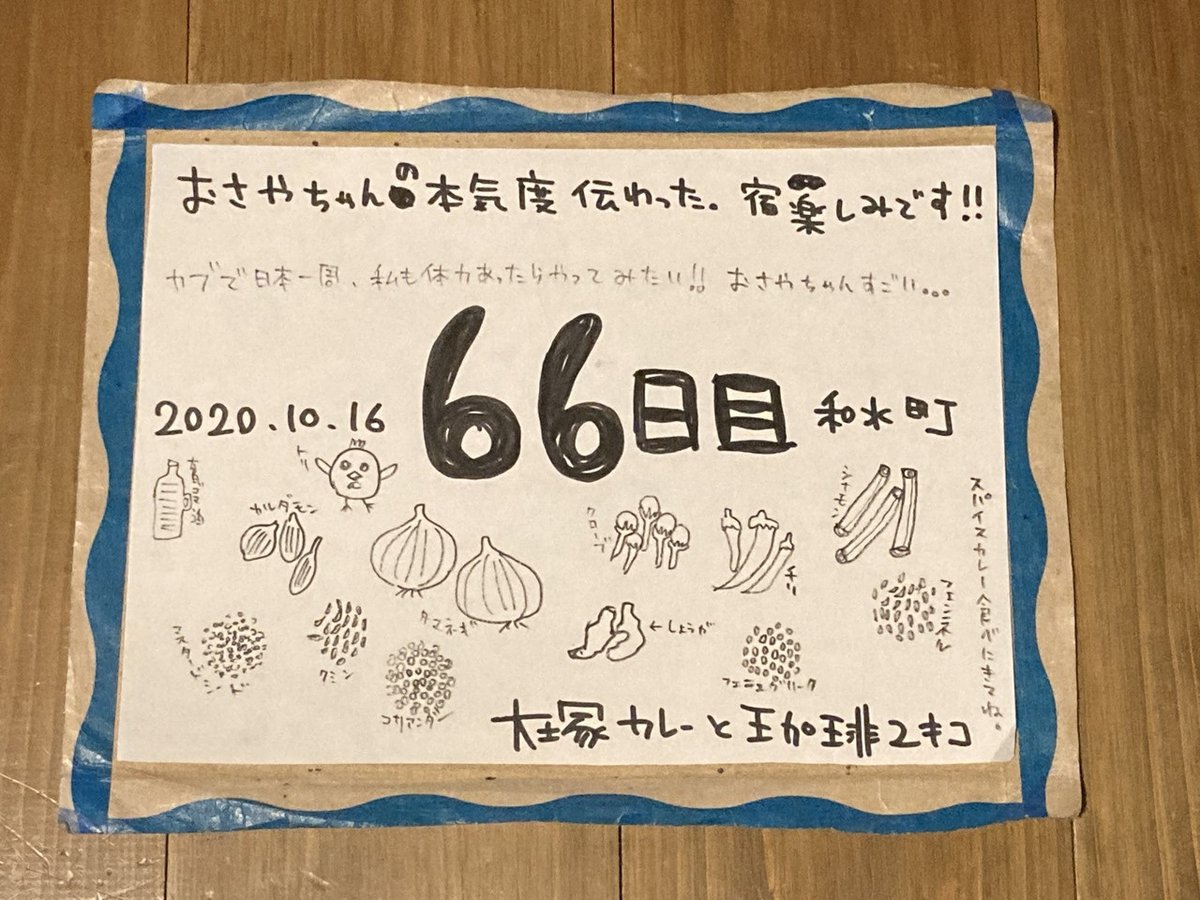 おさやちゃんの本気度伝わった。宿楽しみです!!
カブで日本一周、私も体力あったらやってみたい!! おさやちゃんすごい...
66日目
2020.10.16
和水町
トリ
カルダモン
タマネギ
クローブ
チリ
シナモン
フェンネル
スパイスカレー食べにきてね。
マスタードシード
クミン
コリアンダー
←しょうが
フェニュグリーク
カレーと珈琲ユキコ